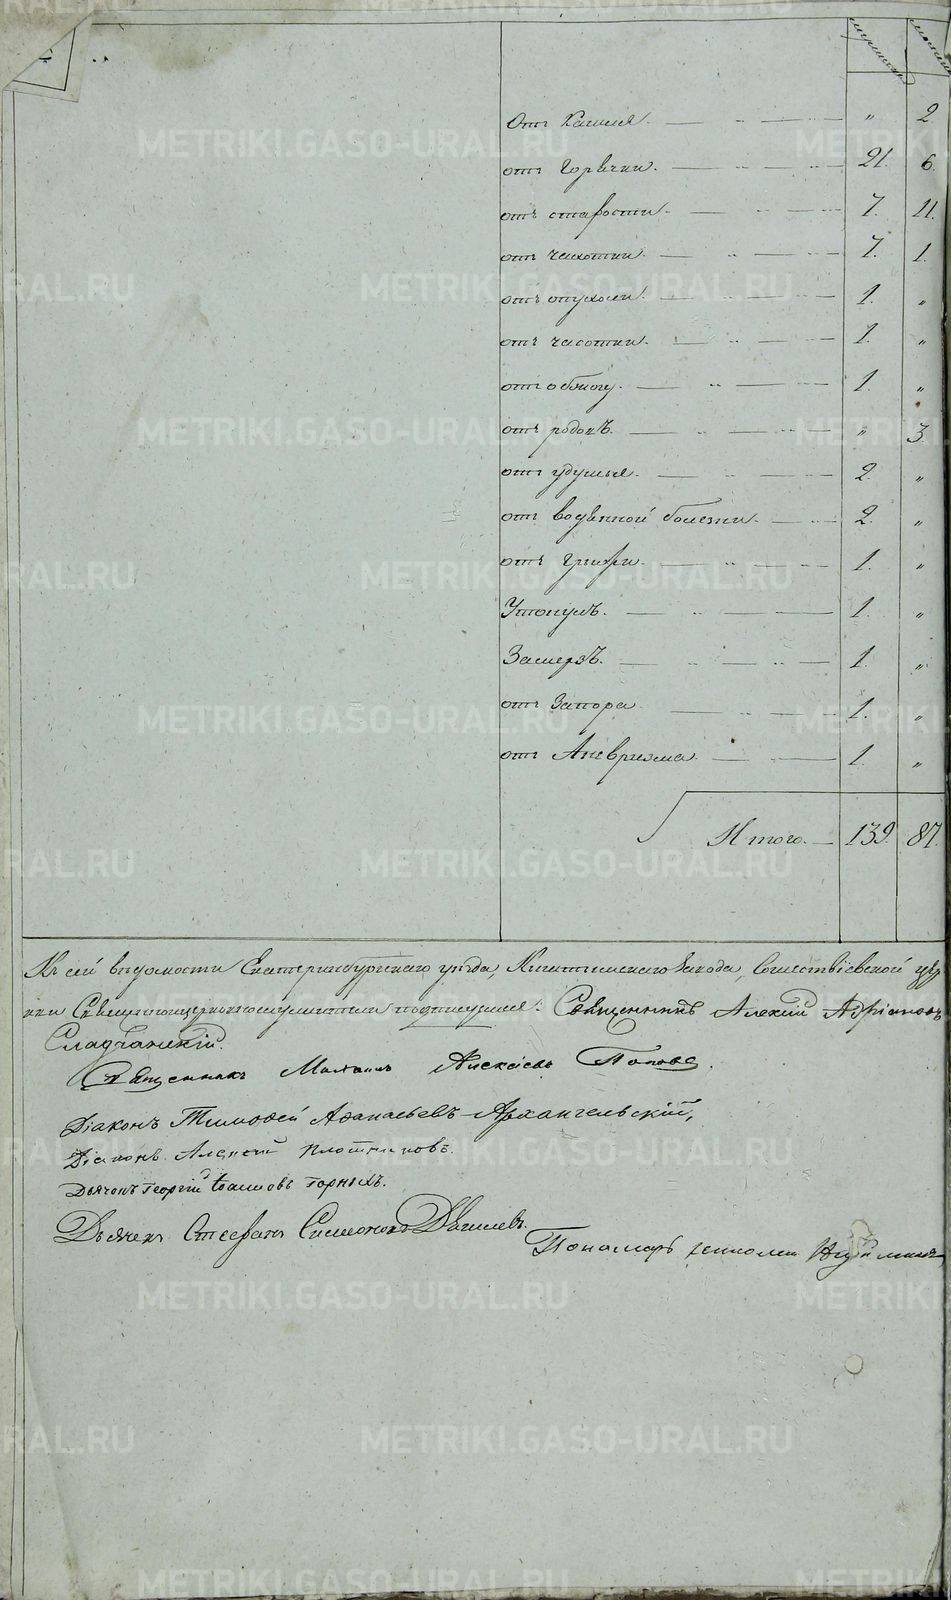 отъ Кашля. " 2
отъ Горячки. 21. 6.
отъ старости. 7. 11.
отъ чахотки. 7. 1.
отъ опухоли. 1. "
отъ чесотки. 1. "
отъ обжогу. 1. "
отъ родовъ. " 3.
отъ удушья. 2. "
отъ водянной болезни. 2. "
отъ грыжи. 1. "
Утонулъ. 1. "
Замерзъ. 1. "
отъ Запора 1. "
отъ Аневризма. 1. "
Итого. 139. 87.
Къ сей ведомости Екатеринбургскаго уезда, Кыштымскаго Завода, Сошествіевской цер
кви Священноцерковнослужители подписуемся: Священникъ Алексій Адріановъ
Сладчанскій.
Священникъ Алексіевъ Поповъ.
Діаконъ Тимофей Афанасьевъ Архангельскій,
Діаконъ Алексій Плотниковъ.
Дьячокъ Георгій Іоанновъ Горныхъ.
Дьячекъ Стефанъ Симеоновъ
Пономарь
METRIKI.GASO-URAL.RU